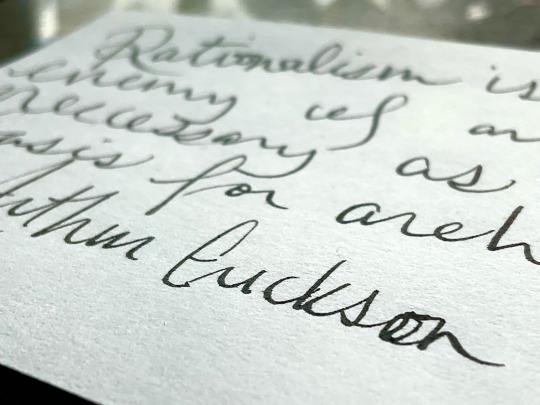 Rationalism is
enemy of
neccessary as
for arch
Arthur Erickson